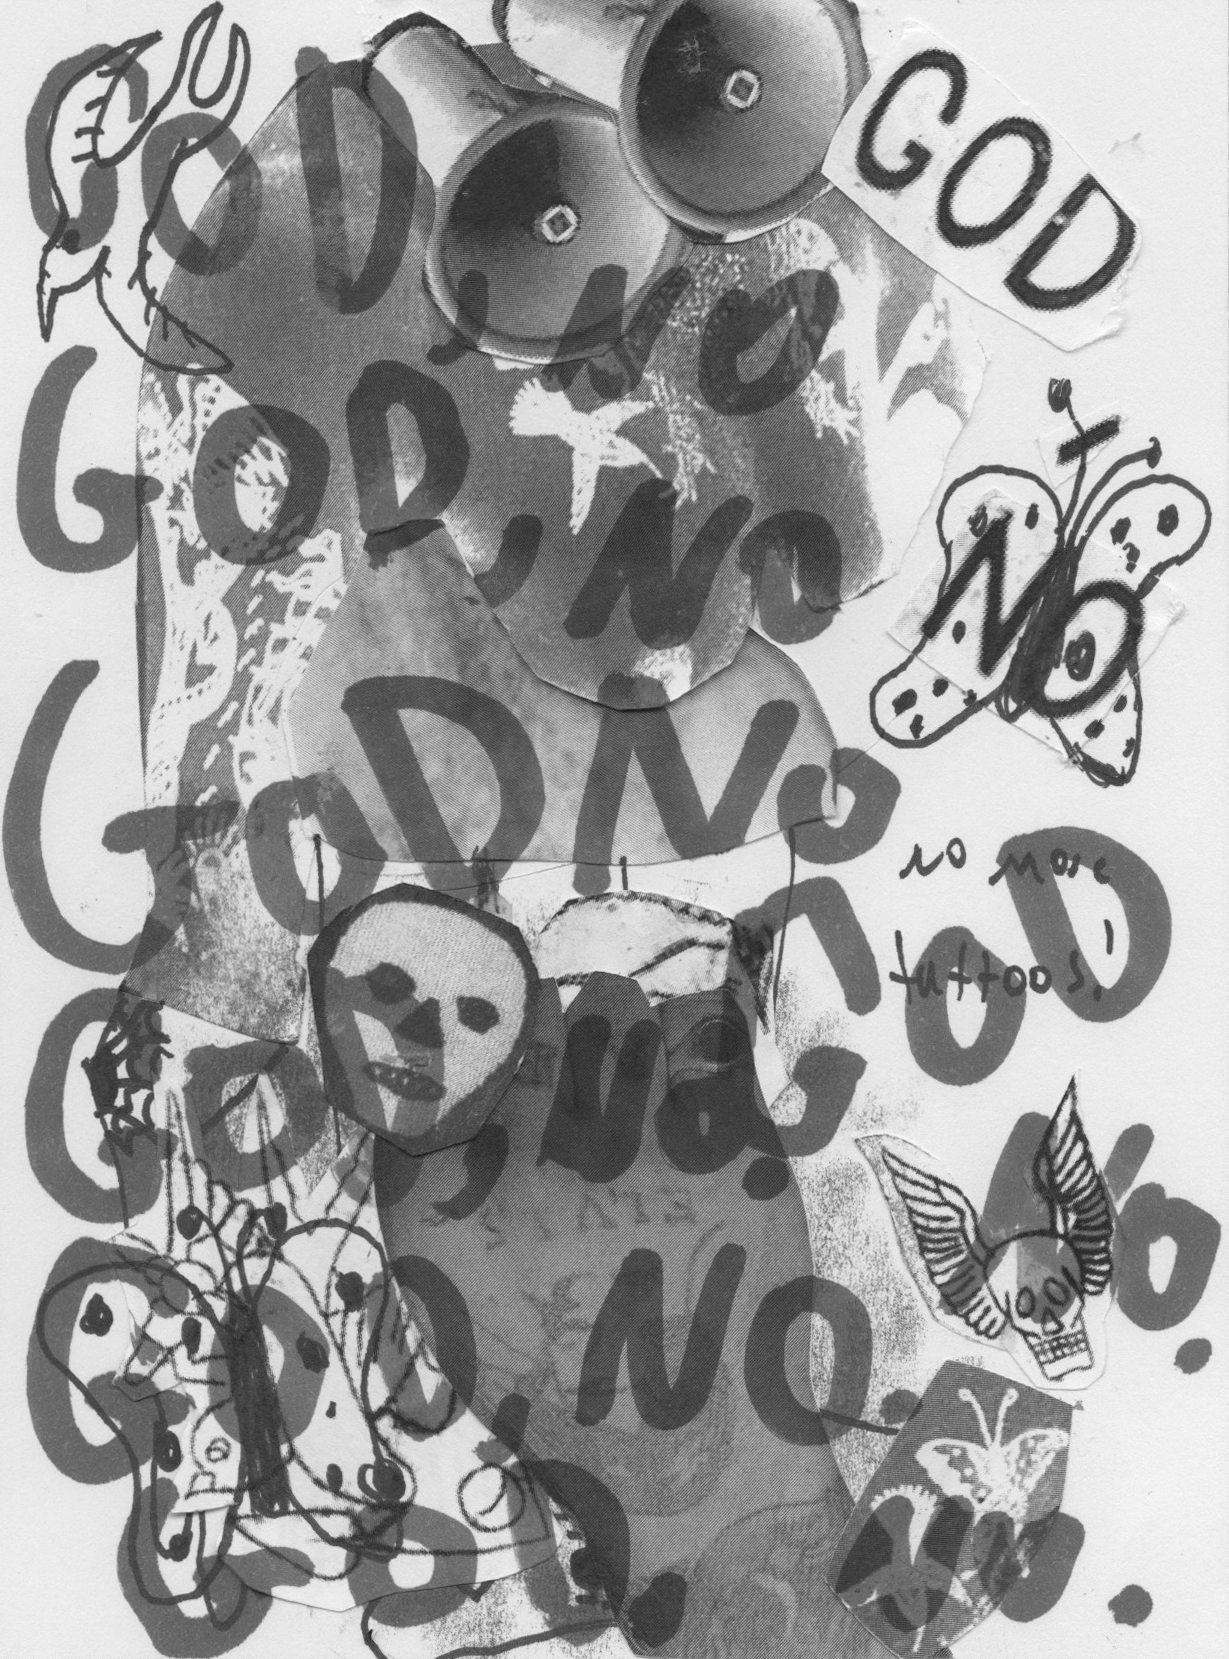 GOD
GOD
, NO
GOD, NO
NO
GOD NO
no more
tattoos!
GOD
GOD, NO.
NO.
GOD, NO.
GOD. NO.